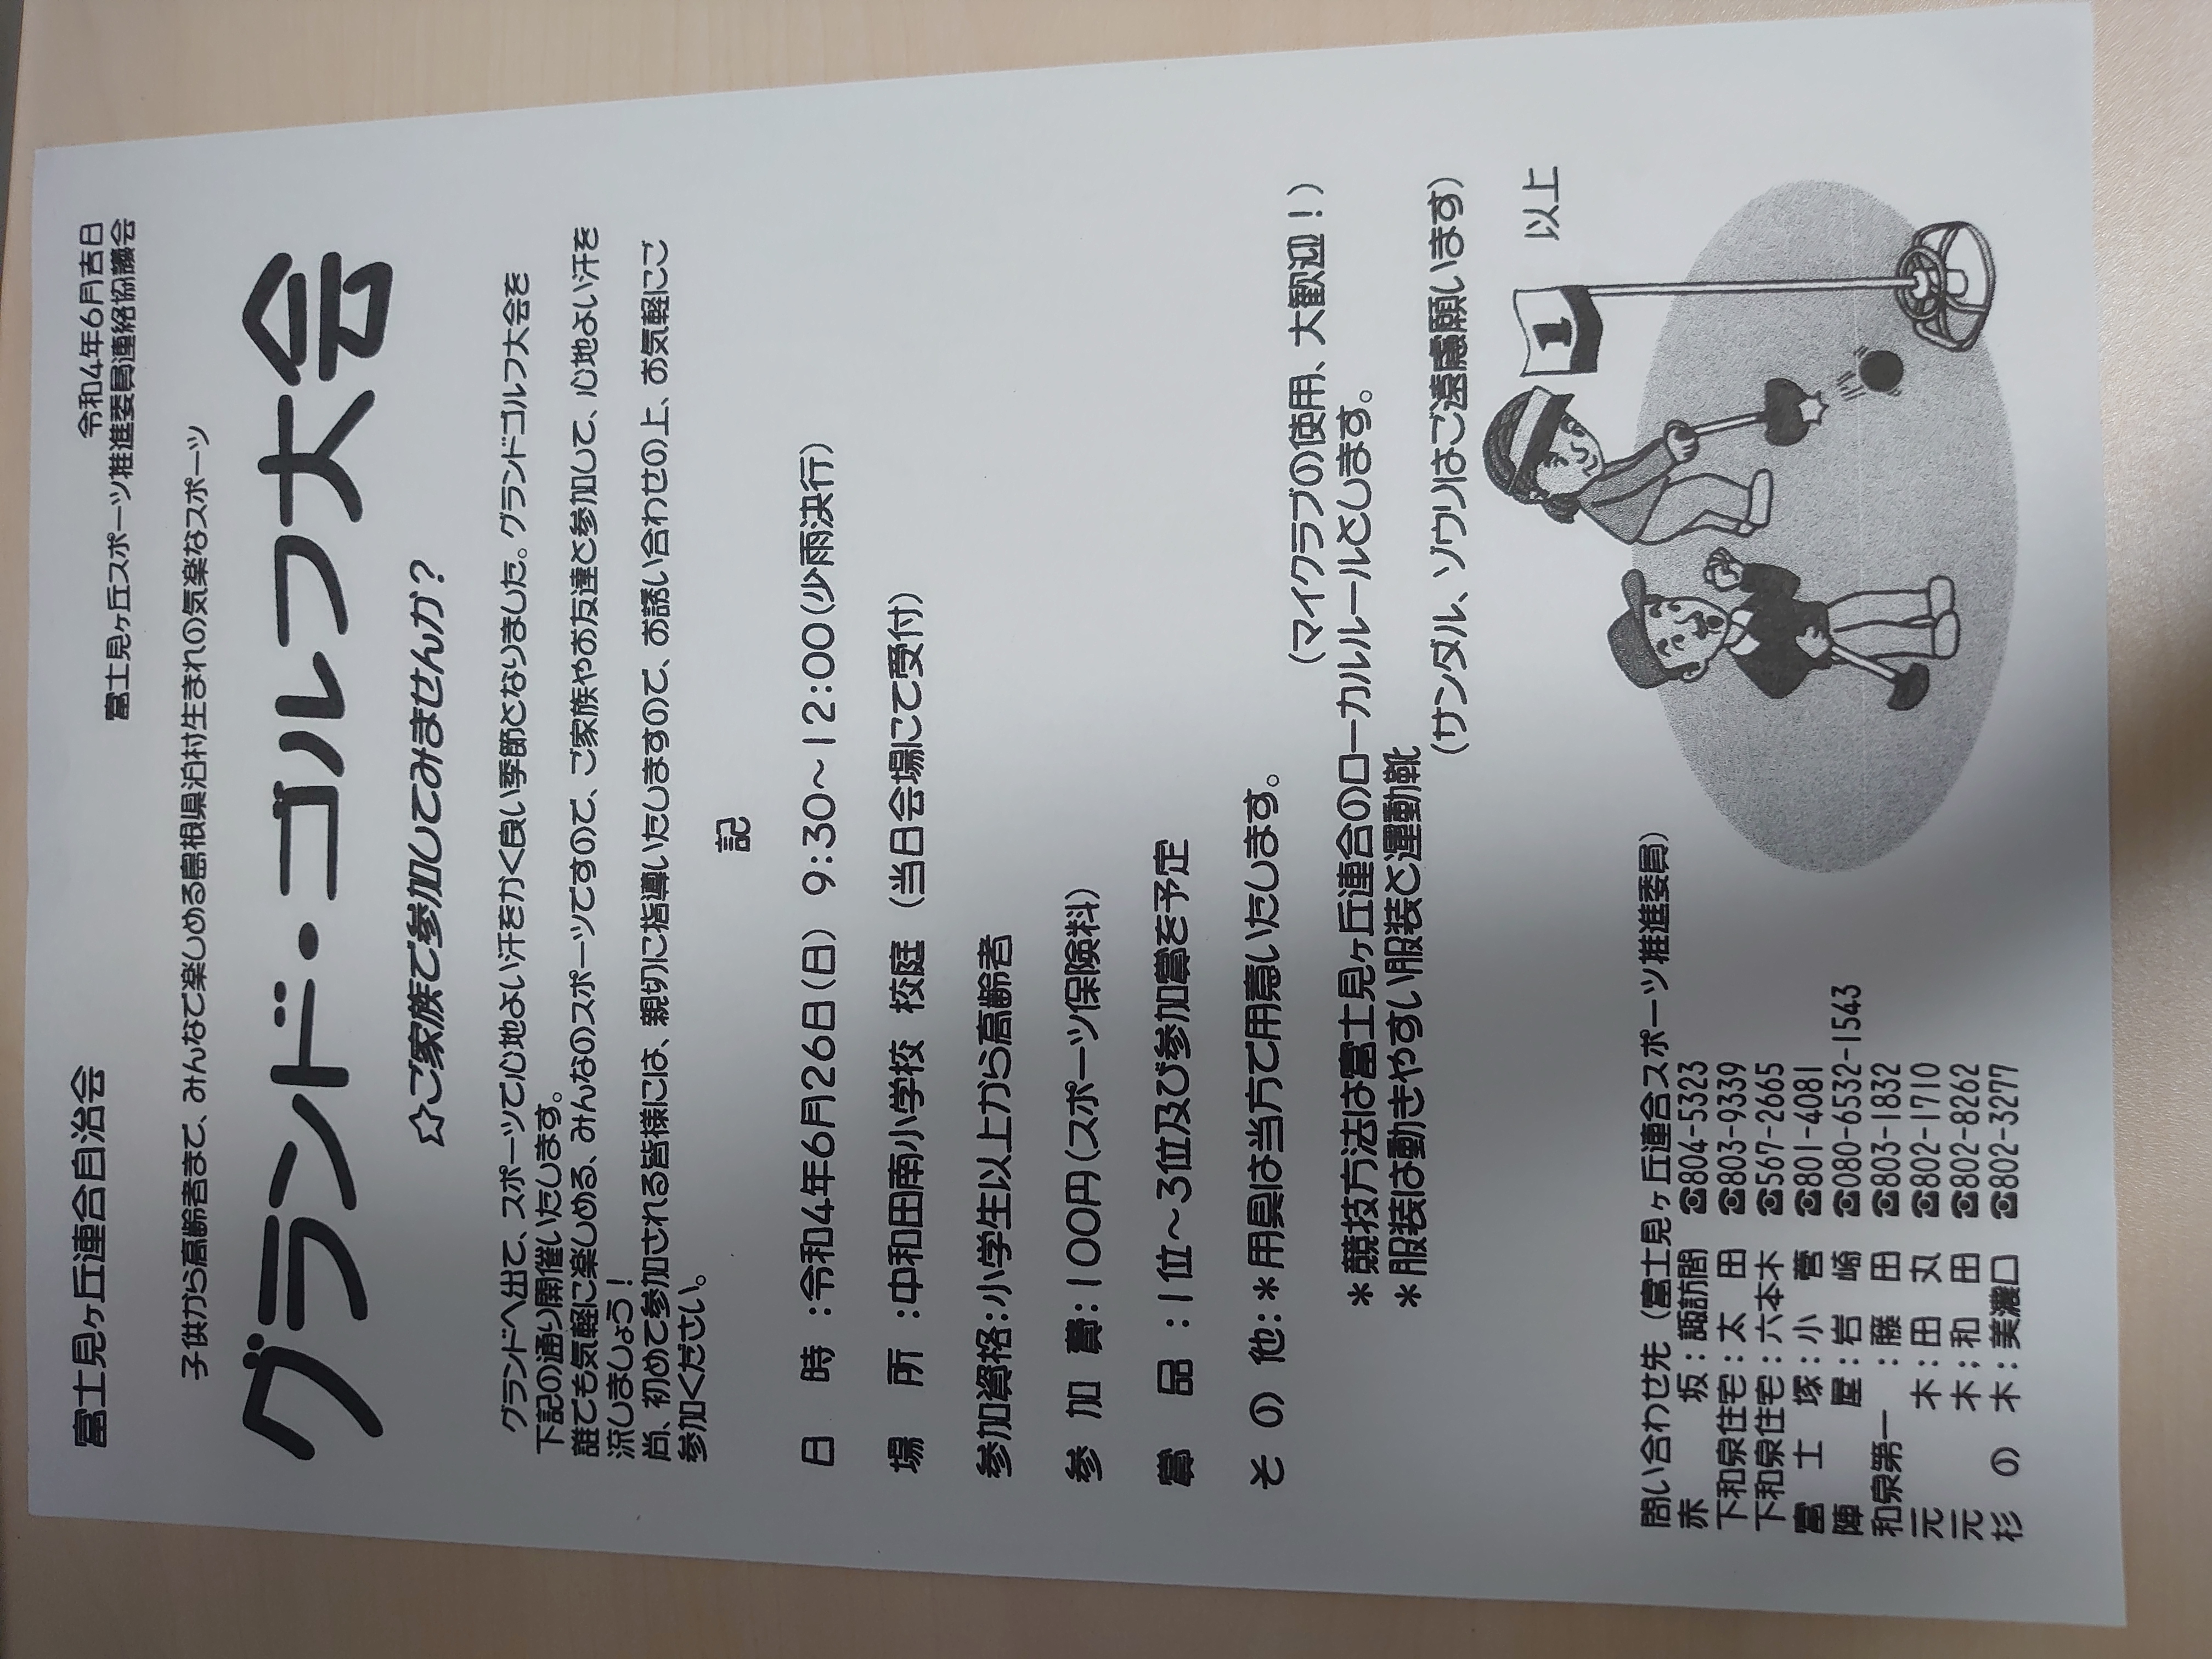 令和4年6月吉日
富士見ヶ丘連合自治会
富士見ヶ丘スポーツ推進委員連絡協議会
子供から高齢者まで、みんなで楽しめる島根県泊村生まれの気楽なスポーツ
グランド・ゴルフ大会
☆ご家族で参加してみませんか？
グランドへ出て、スポーツで心地よい汗をかく良い季節となりました。グランドゴルフ大会を
下記の通り開催いたします。
誰でも気軽に楽しめる、みんなのスポーツですので、ご家族やお友達と参加して、心地よい汗を
流しましょう！
尚、初めて参加される皆様には、親切に指導いたしますので、お誘い合わせの上、お気軽にご
参加ください。
記
日 時：令和4年6月26日(日) 9:30～12:00(少雨決行)
場 所：中和田南小学校 校庭 (当日会場にて受付)
参加資格：小学生以上から高齢者
参 加 費：100円(スポーツ保険料)
賞 品：1位～3位及び参加賞を予定
そ の 他：＊用具は当方で用意いたします。
(マイクラブの使用、大歓迎！)
＊競技方法は富士見ヶ丘連合のローカルルールとします。
＊服装は動きやすい服装と運動靴
(サンダル、ゾウリはご遠慮願います)
以上
1
問い合わせ先 (富士見ヶ丘連合スポーツ推進委員)
赤 坂：諏訪間 ☎804-5323
下和泉住宅：太 田 ☎803-9339
下和泉住宅：六本木 ☎567-2665
富 士 塚：小 菅 ☎801-4081
陣 屋：岩 崎 ☎080-6532-1543
和泉第一 ：藤 田 ☎803-1832
元 木：田 丸 ☎802-1710
元 木：和 田 ☎802-8262
杉 の 木：美濃口 ☎802-3277